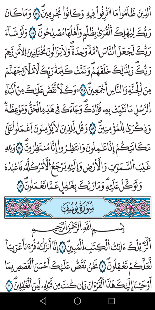 الَّذِينَ ظَلَمُوا مَا أُتْرِفُوا فِيهِ وَكَانُوا مُجْرِمِينَ وَمَا كَانَ
رَبُّكَ لِيُهْلِكَ الْقُرَىٰ بِظُلْمٍ وَأَهْلُهَا مُصْلِحُونَ وَلَوْ شَاءَ
رَبُّكَ لَجَعَلَ النَّاسَ أُمَّةً وَاحِدَةً وَلَا يَزَالُونَ مُخْتَلِفِينَ إِلَّا مَن رَّحِمَ
رَبُّكَ وَلِذَٰلِكَ خَلَقَهُمْ وَتَمَّتْ كَلِمَةُ رَبِّكَ لَأَمْلَأَنَّ جَهَنَّمَ
مِنَ الْجِنَّةِ وَالنَّاسِ أَجْمَعِينَ وَكُلًّا نَّقُصُّ عَلَيْكَ مِنْ أَنبَاءِ
الرُّسُلِ مَا نُثَبِّتُ بِهِ فُؤَادَكَ وَجَاءَكَ فِي هَٰذِهِ الْحَقُّ وَمَوْعِظَةٌ
وَذِكْرَىٰ لِلْمُؤْمِنِينَ وَقُل لِّلَّذِينَ لَا يُؤْمِنُونَ اعْمَلُوا عَلَىٰ
مَكَانَتِكُمْ إِنَّا عَامِلُونَ وَانتَظِرُوا إِنَّا مُنتَظِرُونَ وَلِلَّهِ
غَيْبُ السَّمَاوَاتِ وَالْأَرْضِ وَإِلَيْهِ يُرْجَعُ الْأَمْرُ كُلُّهُ فَاعْبُدْهُ
وَتَوَكَّلْ عَلَيْهِ وَمَا رَبُّكَ بِغَافِلٍ عَمَّا تَعْمَلُونَ
سُورَةُ يُوسُفَ
بِسْمِ اللَّهِ الرَّحْمَٰنِ الرَّحِيمِ
الر تِلْكَ آيَاتُ الْكِتَابِ الْمُبِينِ إِنَّا أَنزَلْنَاهُ قُرْآنًا عَرَبِيًّا
لَّعَلَّكُمْ تَعْقِلُونَ نَحْنُ نَقُصُّ عَلَيْكَ أَحْسَنَ الْقَصَصِ بِمَا
أَوْحَيْنَا إِلَيْكَ هَٰذَا الْقُرْآنَ وَإِن كُنتَ مِن قَبْلِهِ لَمِنَ الْغَافِلِينَ